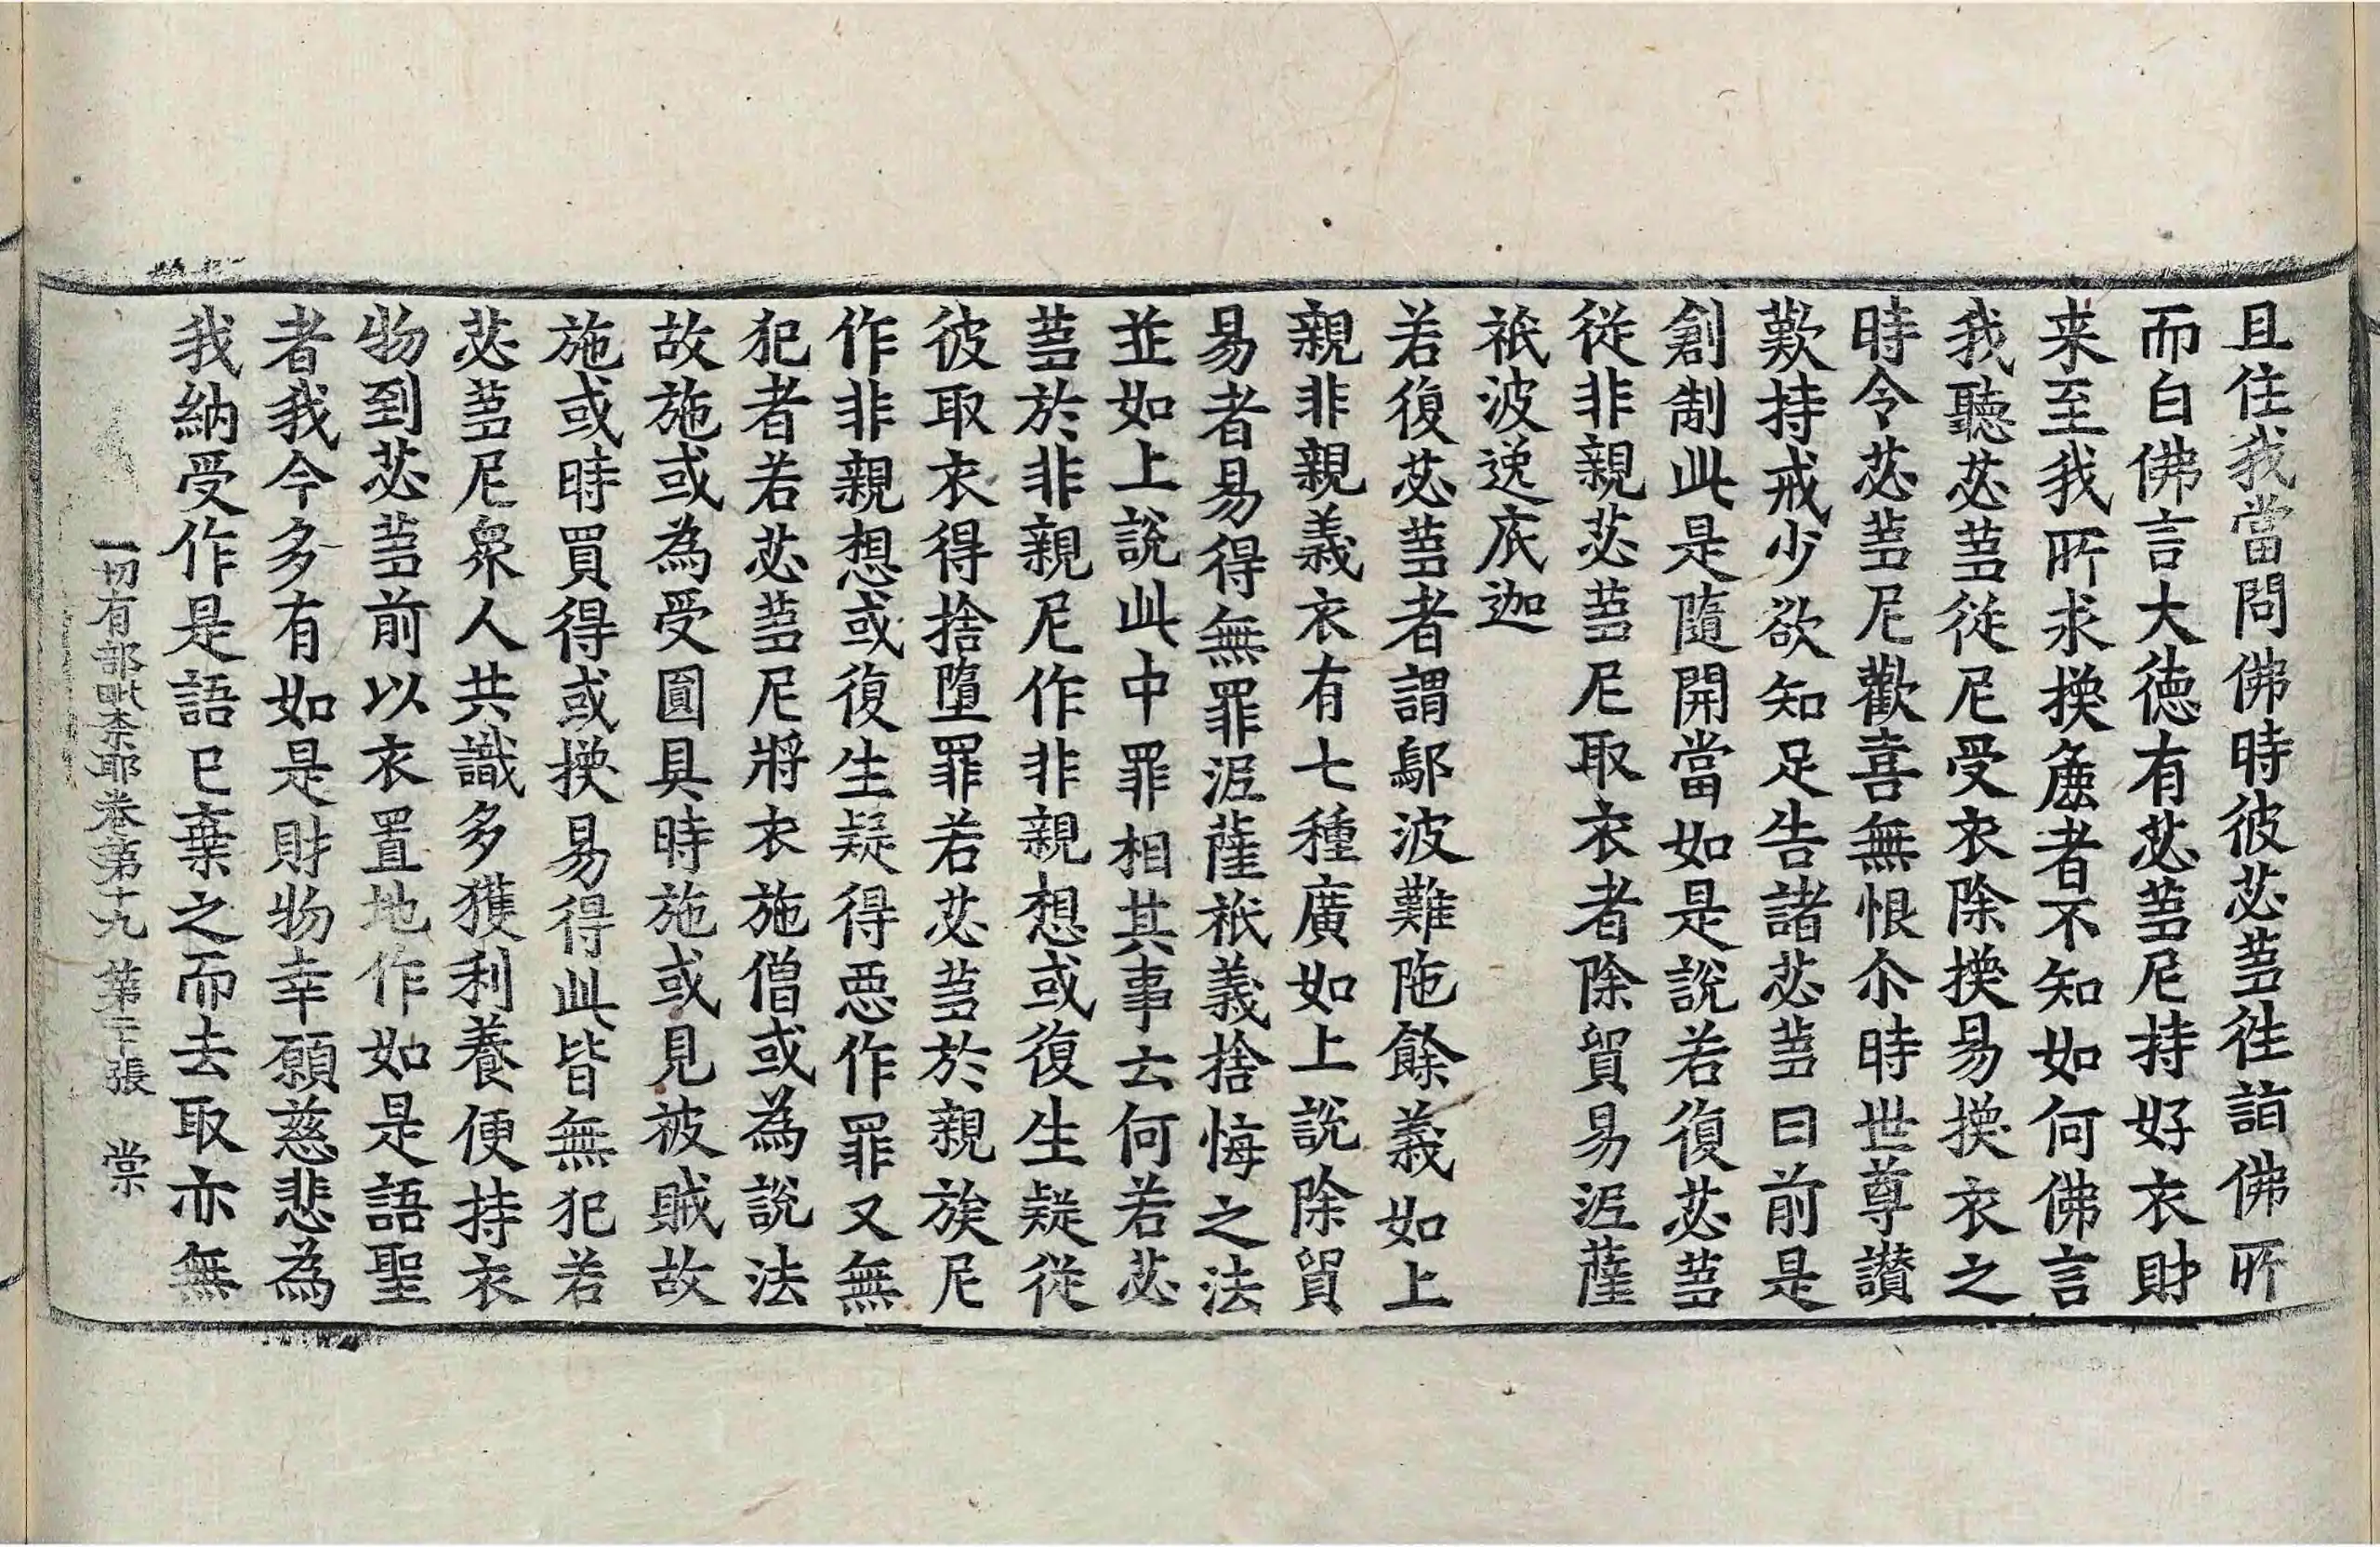 且住我當問佛時彼苾蒭徃詣佛所
而白佛言大徳有苾蒭尼持好衣財
来至我所求換麁者不知如何佛言
我聽苾蒭從尼受衣除換易換衣之
時令苾蒭尼歡喜無恨尒時世尊讃
歎持戒少欲知足告諸苾蒭曰前是
創制此是隨開當如是說若復苾蒭
從非親苾蒭尼取衣者除貿易泥薩
祇波逸底迦
若復苾蒭者謂鄔波難陁餘義如上
親非親義衣有七種廣如上說除貿
易者易得無罪泥薩祇義捨悔之法
並如上說此中罪相其事云何若苾
蒭於非親尼作非親想或復生疑從
彼取衣得捨墮罪若苾蒭於親族尼
作非親想或復生疑得惡作罪又無
犯者若苾蒭尼將衣施僧或為說法
故施或為受圓具時施或見被賊故
施或時買得或換易得此皆無犯若
苾蒭尼衆人共識多獲利養便持衣
物到苾蒭前以衣置地作如是語聖
者我今多有如是財物幸願慈悲為
我納受作是語已棄之而去取亦無
一切有部毗奈耶卷第十九 第二十張 棠